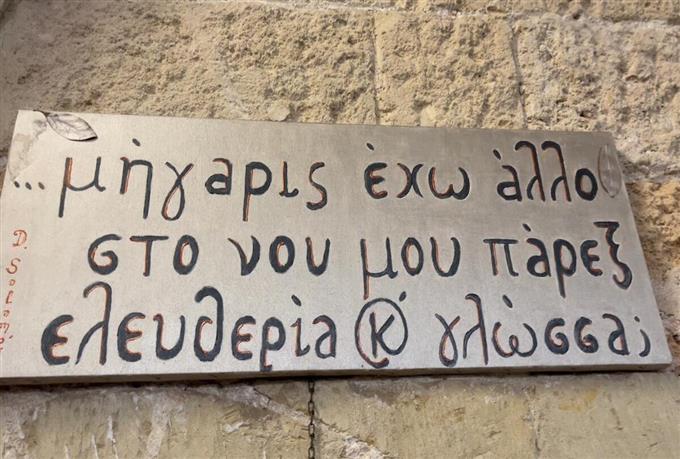 ...μήγαρις έχω άλλο
στο νου μου πάρεξ
ελευθερία κ' γλώσσα;
D. Solomós